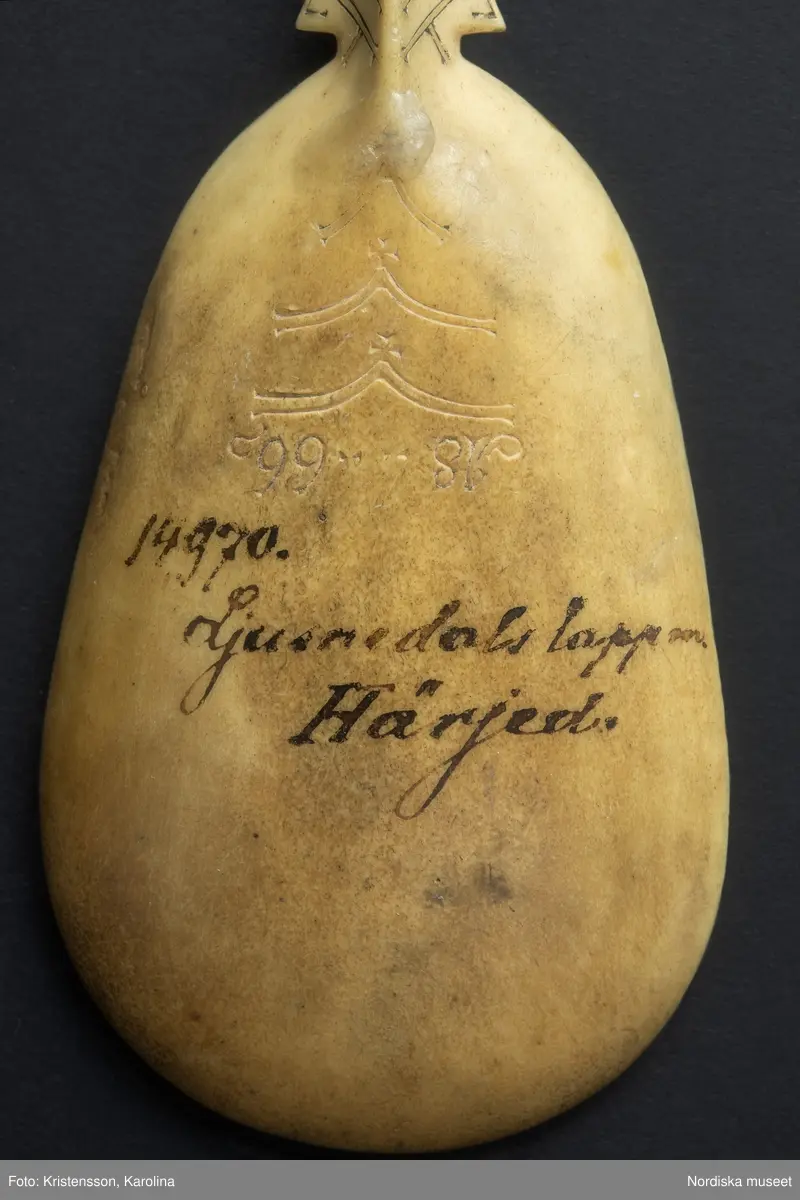 14970.
Ljusnedals lappm.
Härjed.
Foto: Kristensson, Karolina
Nordiska museet